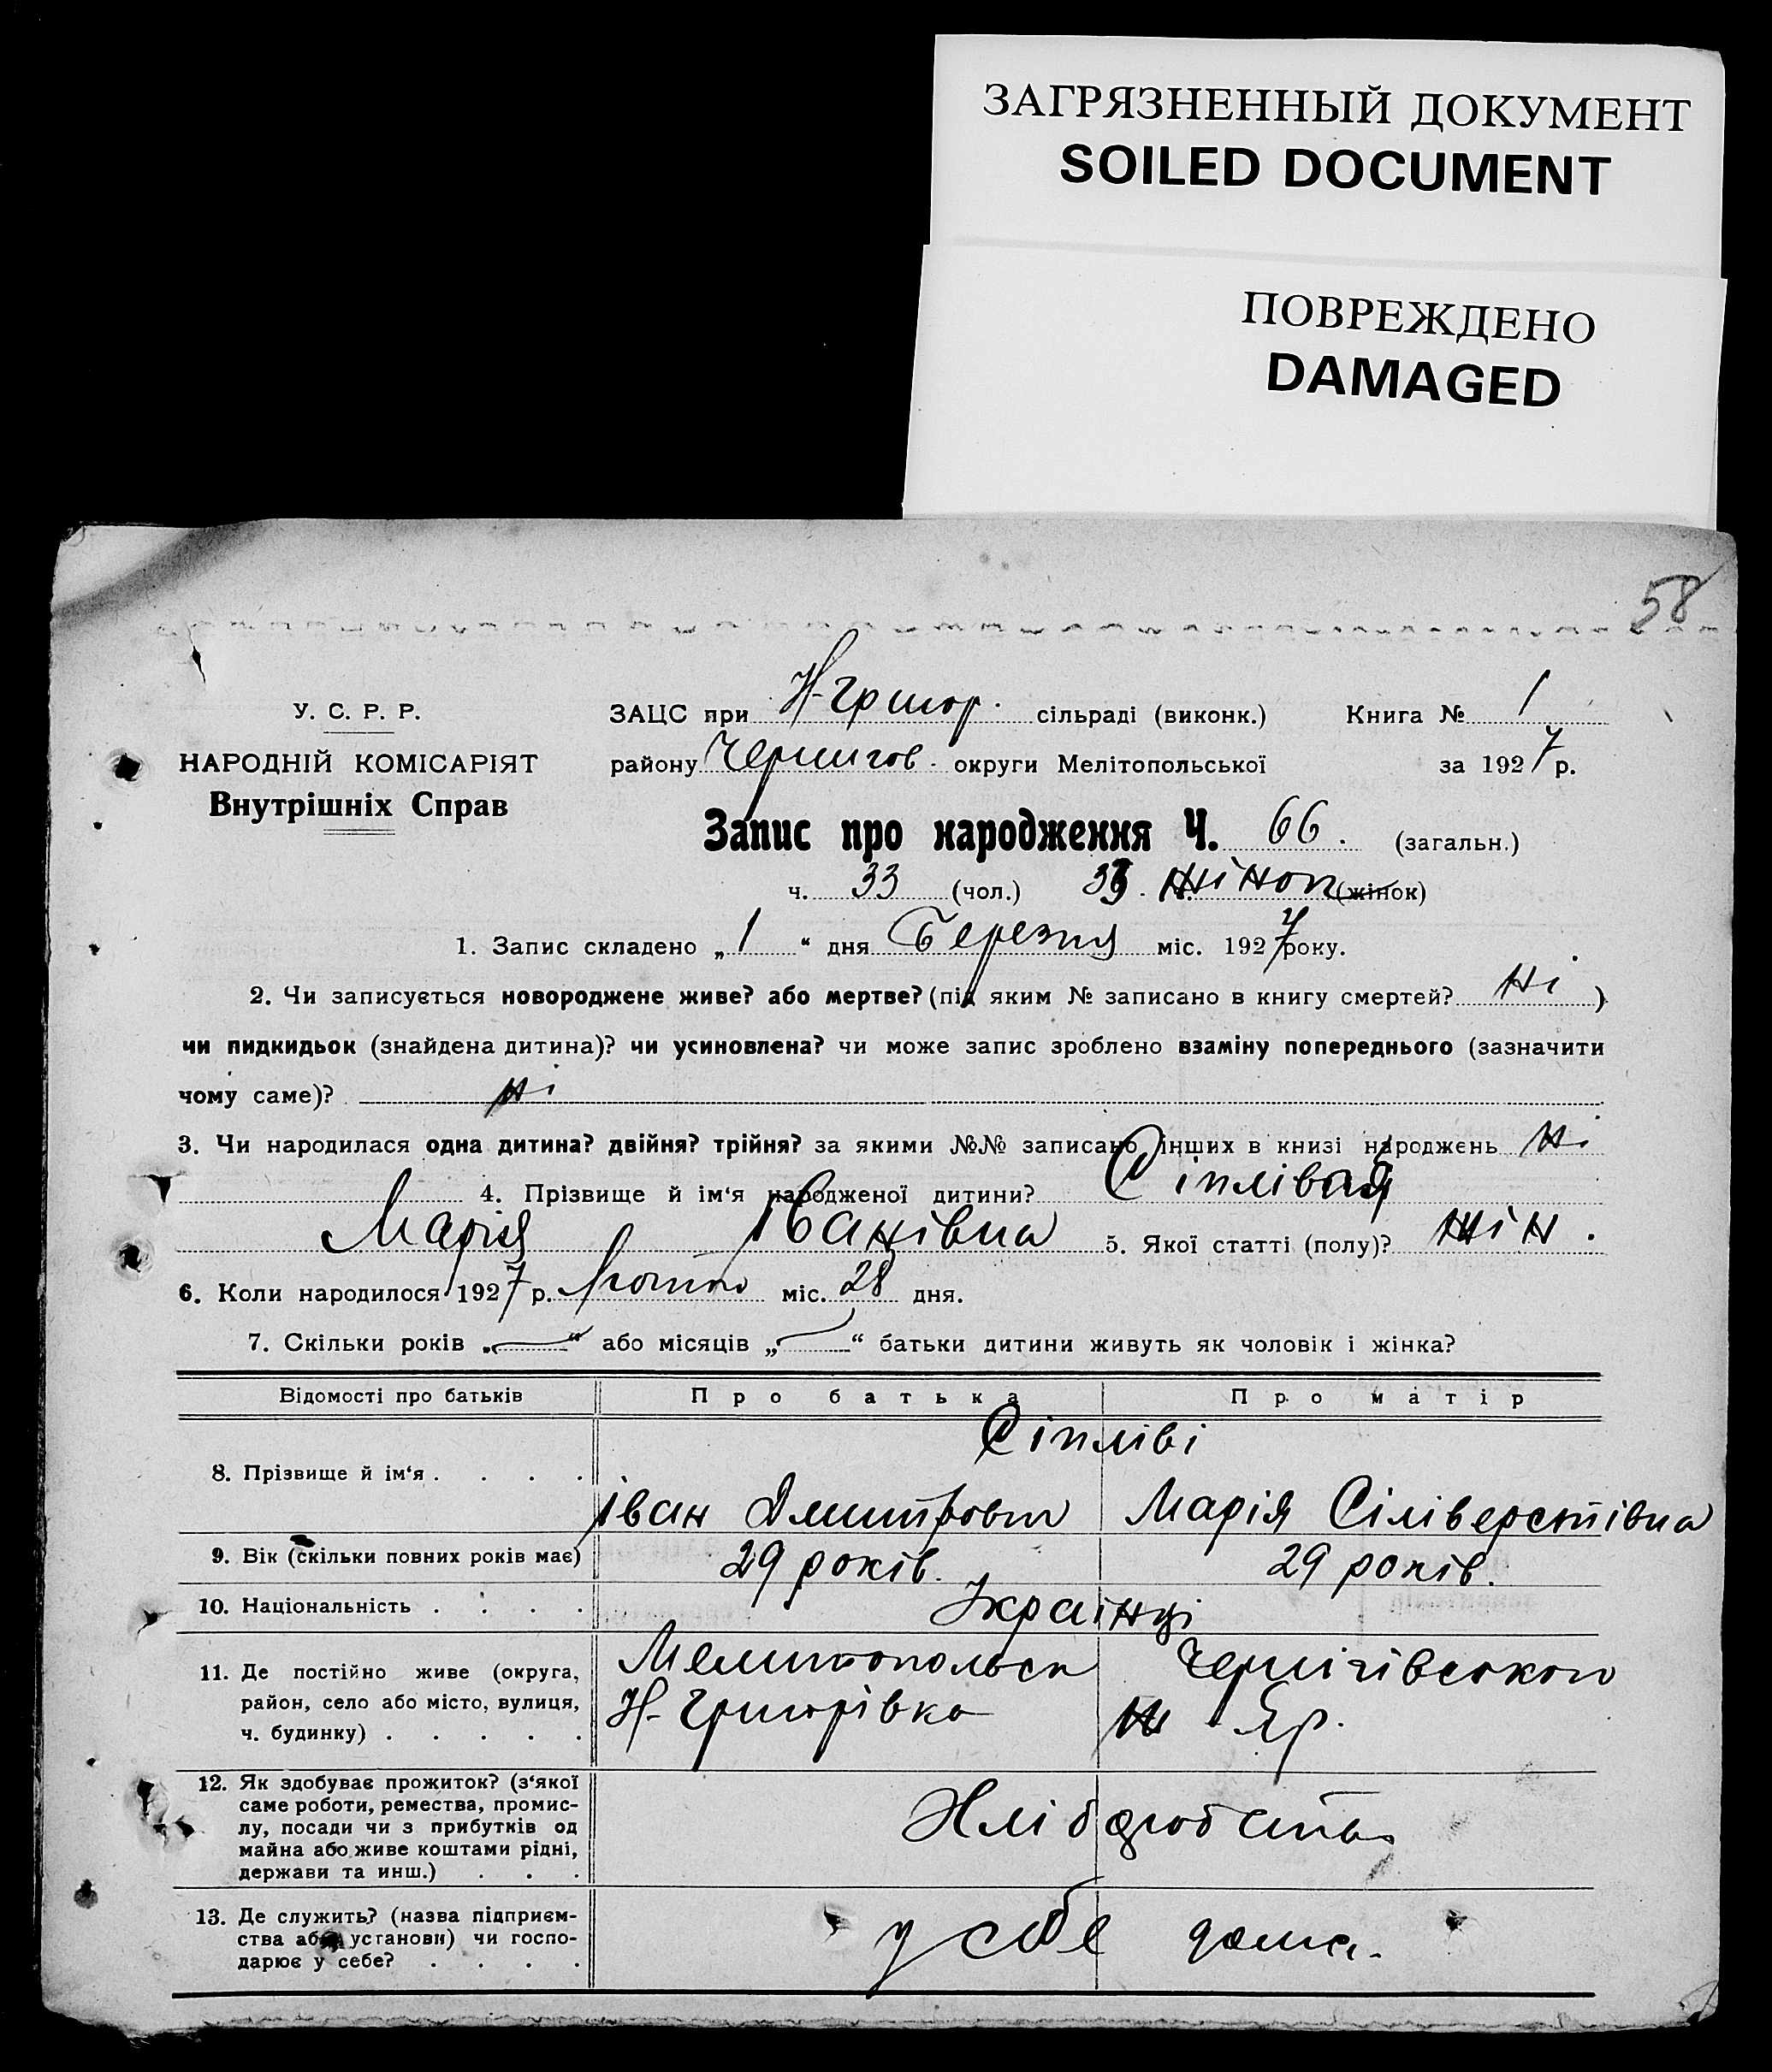 ЗАГРЯЗНЕННЫЙ ДОКУМЕНТ
SOILED DOCUMENT
ПОВРЕЖДЕНО
DAMAGED
58
У. С. Р. Р.
НАРОДНІЙ КОМІСАРІЯТ
Внутрішніх Справ
ЗАЦС при Н-Григор. сільраді (виконк.) Книга № 1
району Чернигов. округи Мелітопольської за 1927 р.
Запис про народження Ч. 66. (загальн.)
ч. 33 (чол.) 33. жінок (жінок)
1. Запис складено „1“ дня Березня міс. 1927 року.
2. Чи записується новороджене живе? або мертве? (під яким № записано в книгу смертей? Ні)
чи пидкидьок (знайдена дитина)? чи усиновлена? чи може запис зроблено взаміну попереднього (зазначити
чому саме)? Ні
3. Чи народилася одна дитина? двійня? трійня? за якими №№ записано інших в книзі народжень Ні
4. Прізвище й ім‘я народженої дитини? Сіплівая
Марія Іванівна 5. Якої статті (полу)? жін.
6. Коли народилося 1927 р. Лютого міс. 28 дня.
7. Скільки років „—“ або місяців „—“ батьки дитини живуть як чоловік і жінка?
Відомості про батьків Про батька Про матір
8. Прізвище й ім‘я . . . . Сіпліві
Іван Дмитрович Марія Сіліверстівна
9. Вік (скільки повних років має) 29 років. 29 років.
10. Національність . . . . Українці
11. Де постійно живе (округа, район, село або місто, вулиця, ч. будинку) . . . . . Мелитопольск Чернігівського
Н-Григорівка
12. Як здобуває прожиток? (з‘якої саме роботи, ремества, промислу, посади чи з прибутків од майна або живе коштами рідні, держави та инш.) . . .
13. Де служить? (назва підприємства або установи) чи господарює у себе? . . . . у себе дома.